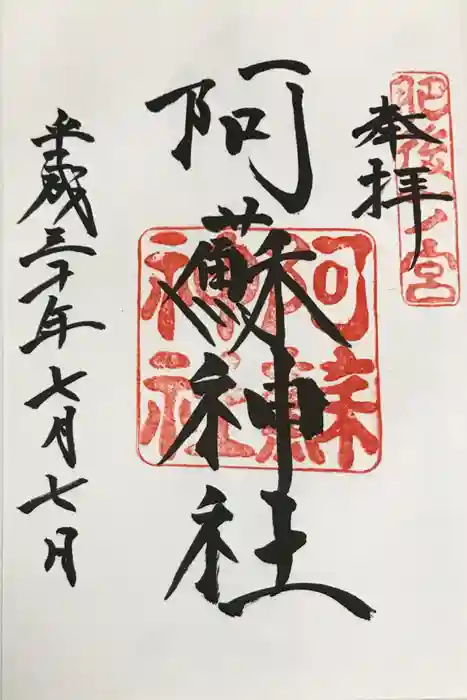 肥後一ノ宮
奉拝
阿蘇神社
阿蘇神社
平成三十年七月七日